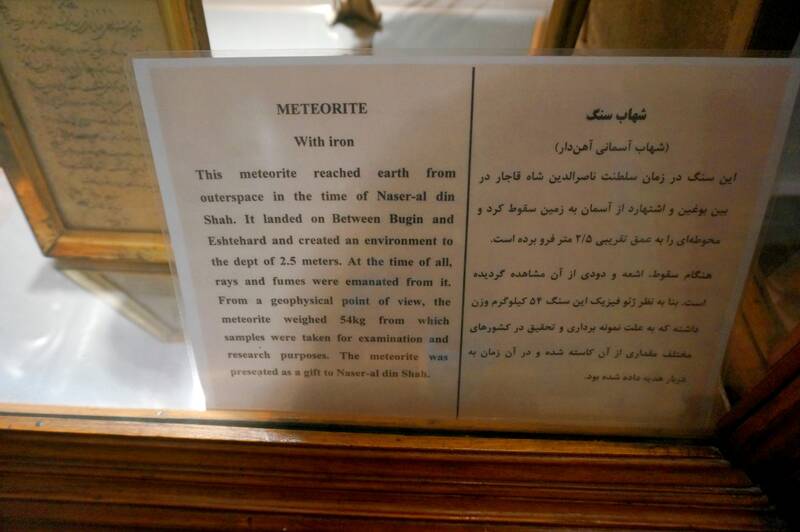 METEORITE
With iron
This meteorite reached earth from
outerspace in the time of Naser-al din
Shah. It landed on Between Bugin and
Eshtehard and created an environment to
the dept of 2.5 meters. At the time of all,
rays and fumes were emanated from it.
From a geophysical point of view, the
meteorite weighed 54kg from which
samples were taken for examination and
research purposes. The meteorite was
presented as a gift to Naser-al din Shah.
شهاب سنگ
(شهاب آسمانی آهن‌دار)
این سنگ در زمان سلطنت ناصرالدین شاه قاجار در
بین بوغین و اشتهارد از آسمان به زمین سقوط کرد و
محوطه‌ای را به عمق تقریبی ۲/۵ متر فرو برده است.
هنگام سقوط، اشعه و دودی از آن مشاهده گردیده
است. بنا به نظر ژئو فیزیک این سنگ ۵۴ کیلوگرم وزن
داشته که به علت نمونه برداری و تحقیق در کشورهای
مختلف مقداری از آن کاسته شده و در آن زمان به
دربار هدیه داده شده بود.